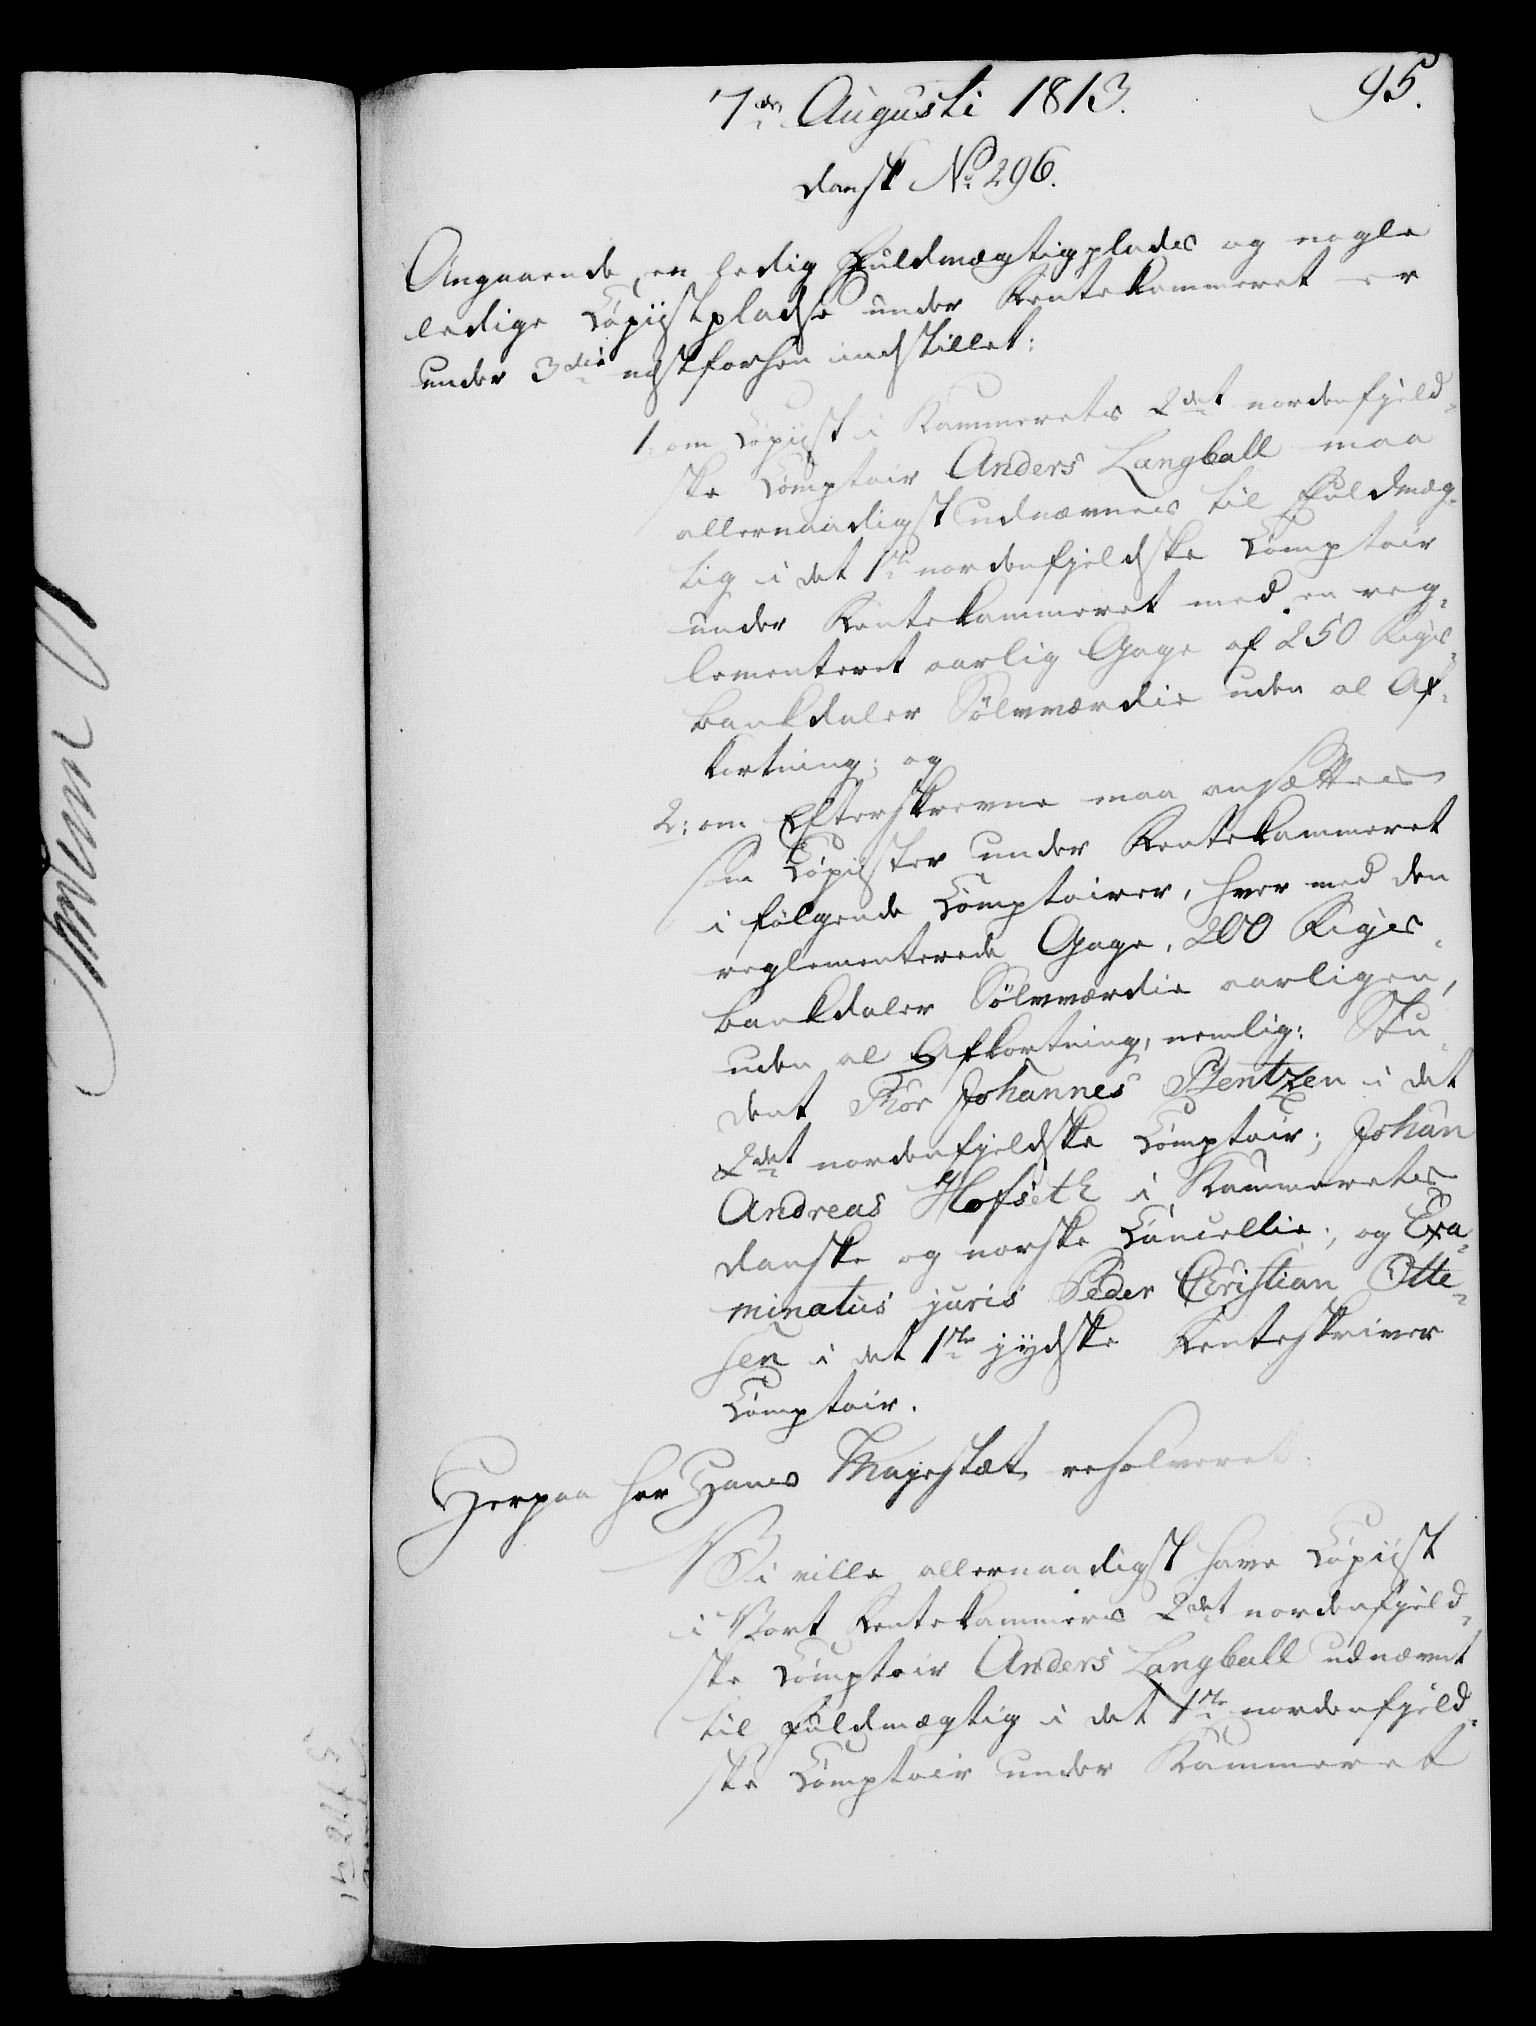 95.
7de Augusti 1813.
dansk No 296.
Angaaende en ledig Fuldmægtigplads og nogle
ledige Copiistpladse under Rentekammeret er
under 3die nestforhen indstillet:
1. om Copiist i Kammerets 2det nordenfjeld-
ske Comptoir Anders Langball maa
allernaadigst udnævnes til Fuldmæg-
tig i det 1ste nordenfjeldske Comptoir
under Rentekammeret med en reg-
lementeret aarlig Gage af 250 Rigs-
bankdaler Sølvværdie uden al Af-
kortning; og
2: om Efterskrevne maa ansættes
som Copiister under Rentekammeret
i følgende Comptoirer, hver med den
reglementerede Gage, 200 Rigs-
bankdaler Sølvværdie aarligen,
uden al Afkortning, nemlig: Stu-
dent Thor Johannes Bentzen i det
2det nordenfjeldske Comptoir; Johan
Andreas Hofseth i Kammerets
danske og norske Cancellie; og Exa-
minatus juris Peder Christian Otte-
sen i det 1ste jydske Renteskriver
Comptoir.
Herpaa har Hans Majestæt resolveret:
Vi ville allernaadigst have Copiist
i Vort Rentekammers 2det nordenfjeld-
ske Comptoir Anders Langball udnævnt
til Fuldmægtig i det 1ste nordenfjeld-
ske Comptoir under Kammeret